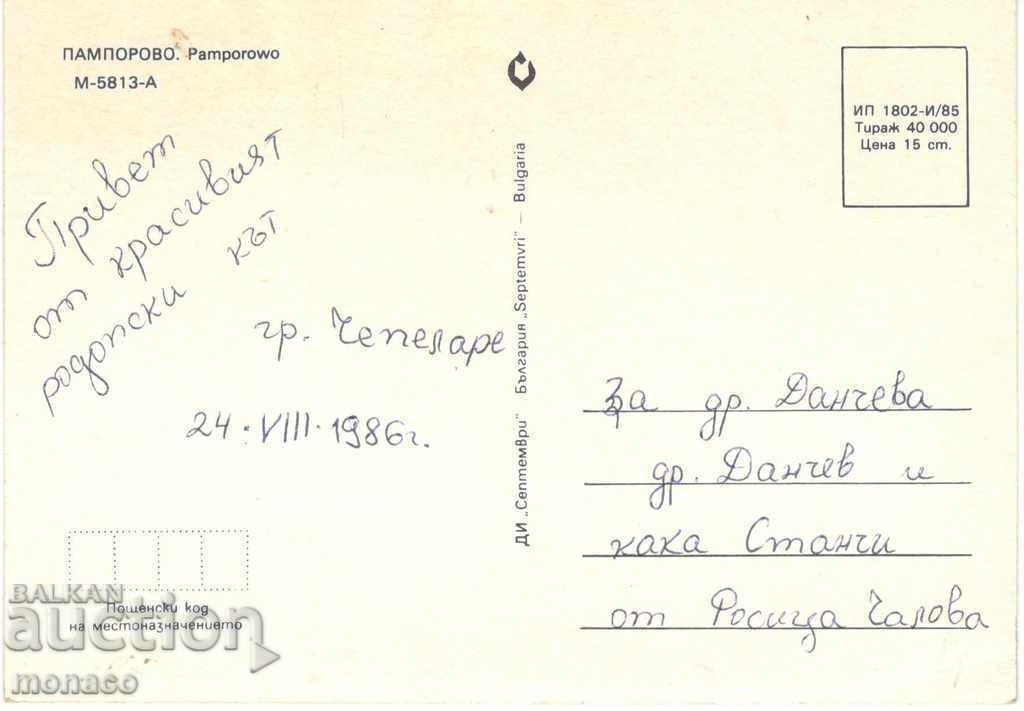 ПАМПОРОВО. Pamporowo
М-5813-А
Привет
от красивият
родопски кът
гр. Чепеларе
24.VIII.1986г.
Пощенски код
на местоназначението
ДИ „Септември" България „Septemvri" — Bulgaria
ИП 1802-И/85
Тираж 40 000
Цена 15 ст.
За др. Данчева
др. Данчев и
кака Станчи
от Росица Чалова
BALKAN
auction
monaco